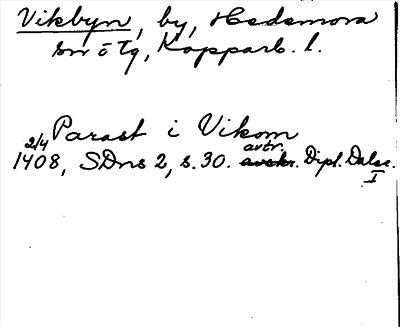 Vikbyn, by, Hedemora
sn o tg, Kopparb. l.
Parast i Vikom
2/4 avtr.
1408, SDns 2, s. 30. avskr. Dipl. Dalec.
I